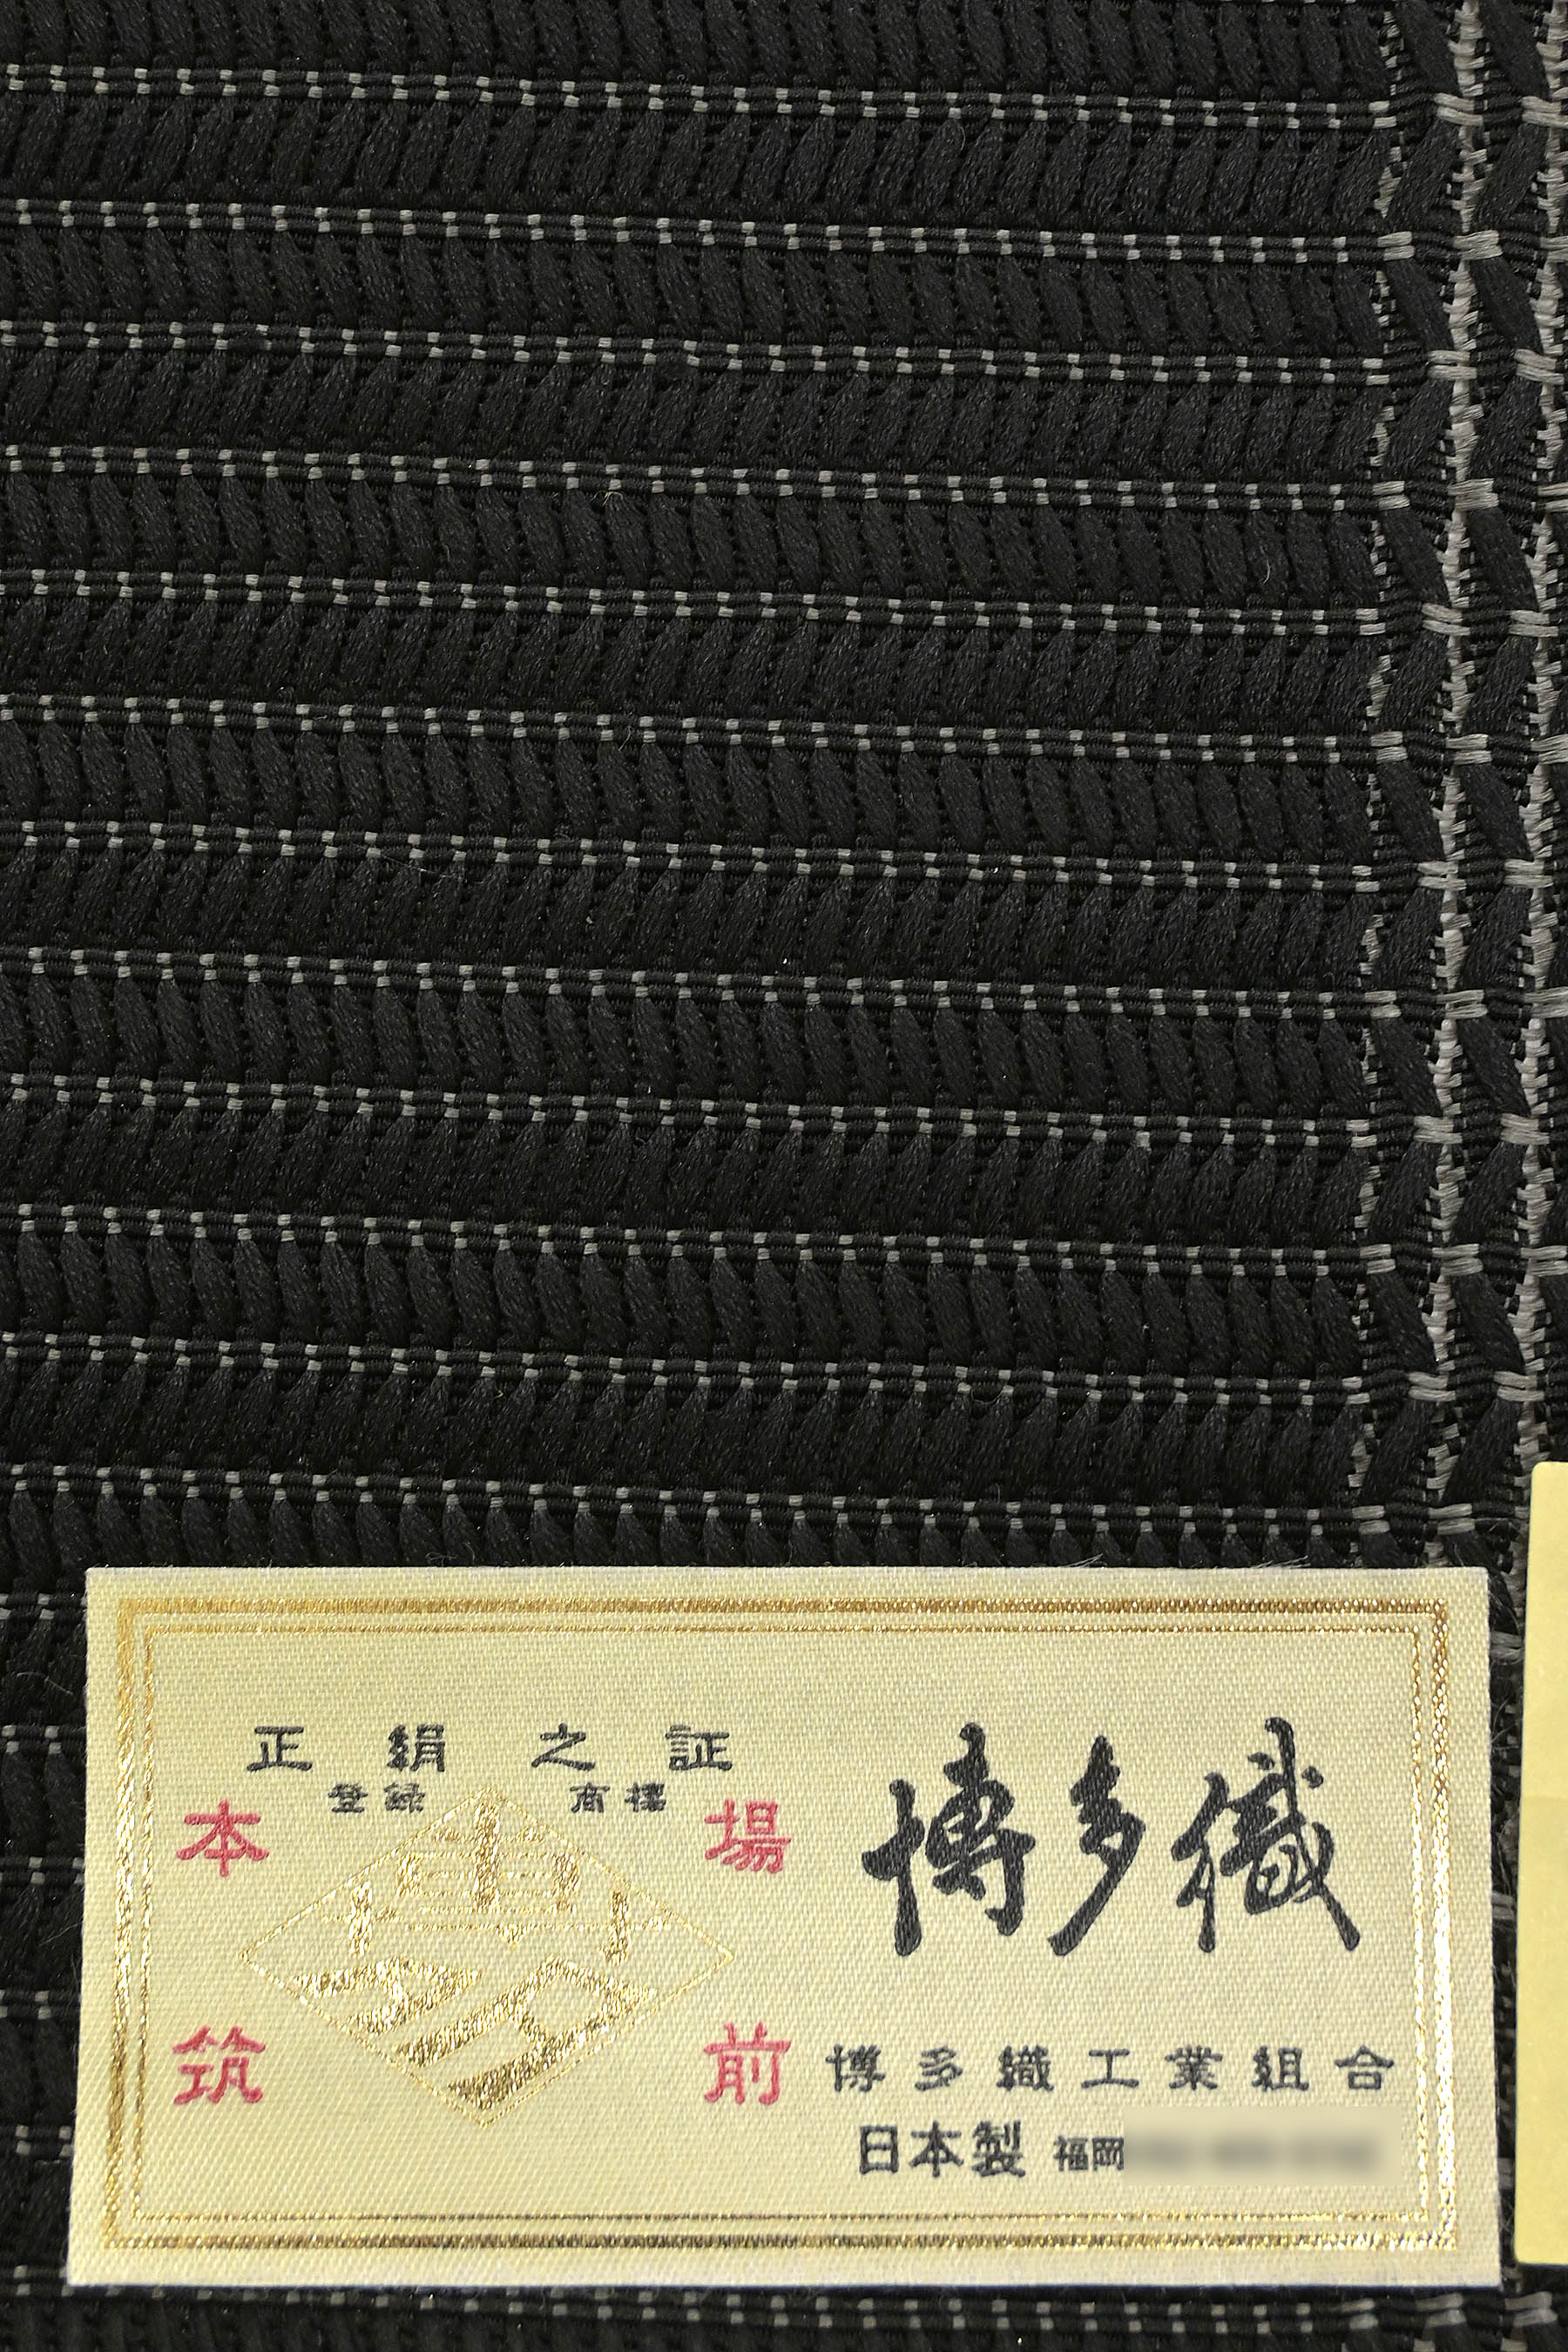 正絹之証
登録 商標
本場
筑前
博多織
博多織工業組合
日本製 福岡